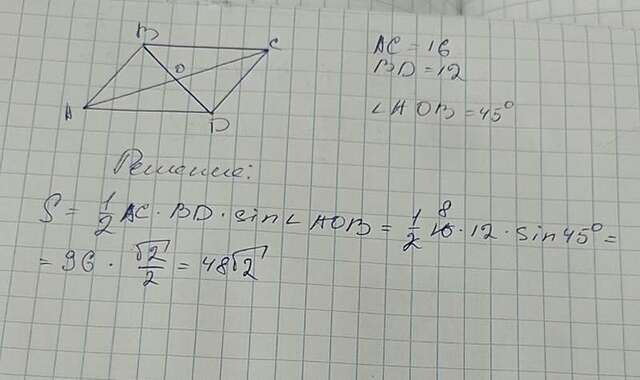 B
C
O
A
D
AC = 16
BD = 12
∠AOB = 45°
Решение:
S = 1/2 AC · BD · sin∠AOB = 1/2 16 8 · 12 · sin45° =
= 96 · √2/2 = 48√2